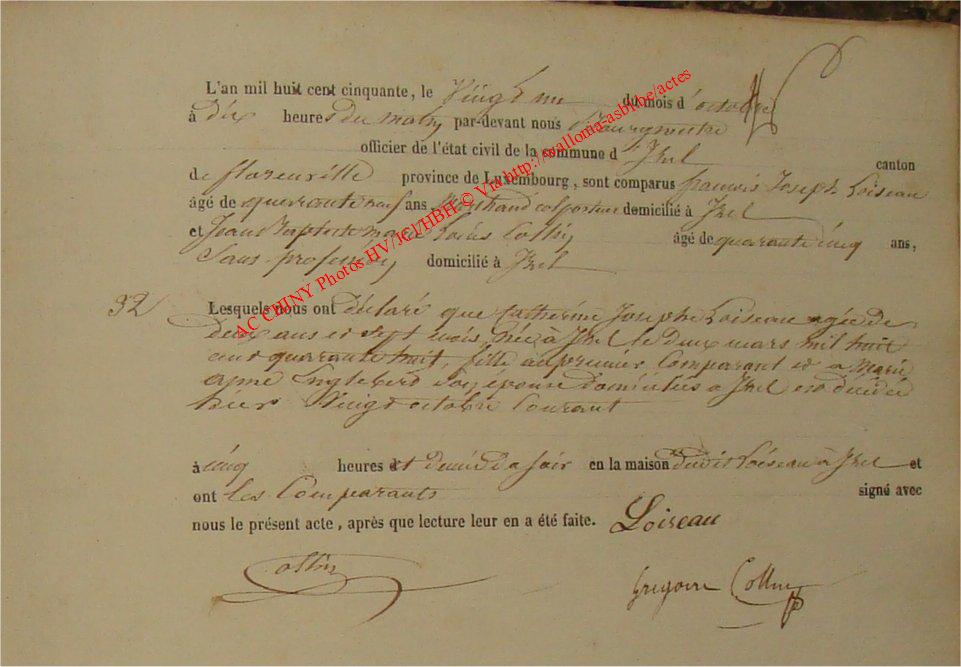 L'an mil huit cent cinquante, le Vingt un du mois d'octobre
à dix heures du matin par-devant nous Bourgmestre
officier de l'état civil de la commune d'Izel canton
de florenville province de Luxembourg, sont comparus francois Joseph Loiseau
âgé de quarante neuf ans, Marchand colporteur domicilié à Izel
et Jean Baptiste Marie Louis Collin âgé de quarante cinq ans,
Sans profession domicilié à Izel
32
Lesquels nous ont déclaré que Catherine Josephe Loiseau agée de
deux ans et sept mois, née à Izel le deux mars mil huit
cent quarante huit, fille au premier Comparant et a Marie
anne Englebert Son épouse domiciliés a Izel est décédée
hier Vingt octobre Courant
à cinq heures et demie du soir en la maison dudit Loiseau à Izel et
ont les Comparants signé avec
nous le présent acte, après que lecture leur en a été faite. Loiseau
Collin Gregoire Collin
AC CHINY Photos HV/JCl/HBH © Via http://walloma-asbl.be/actes